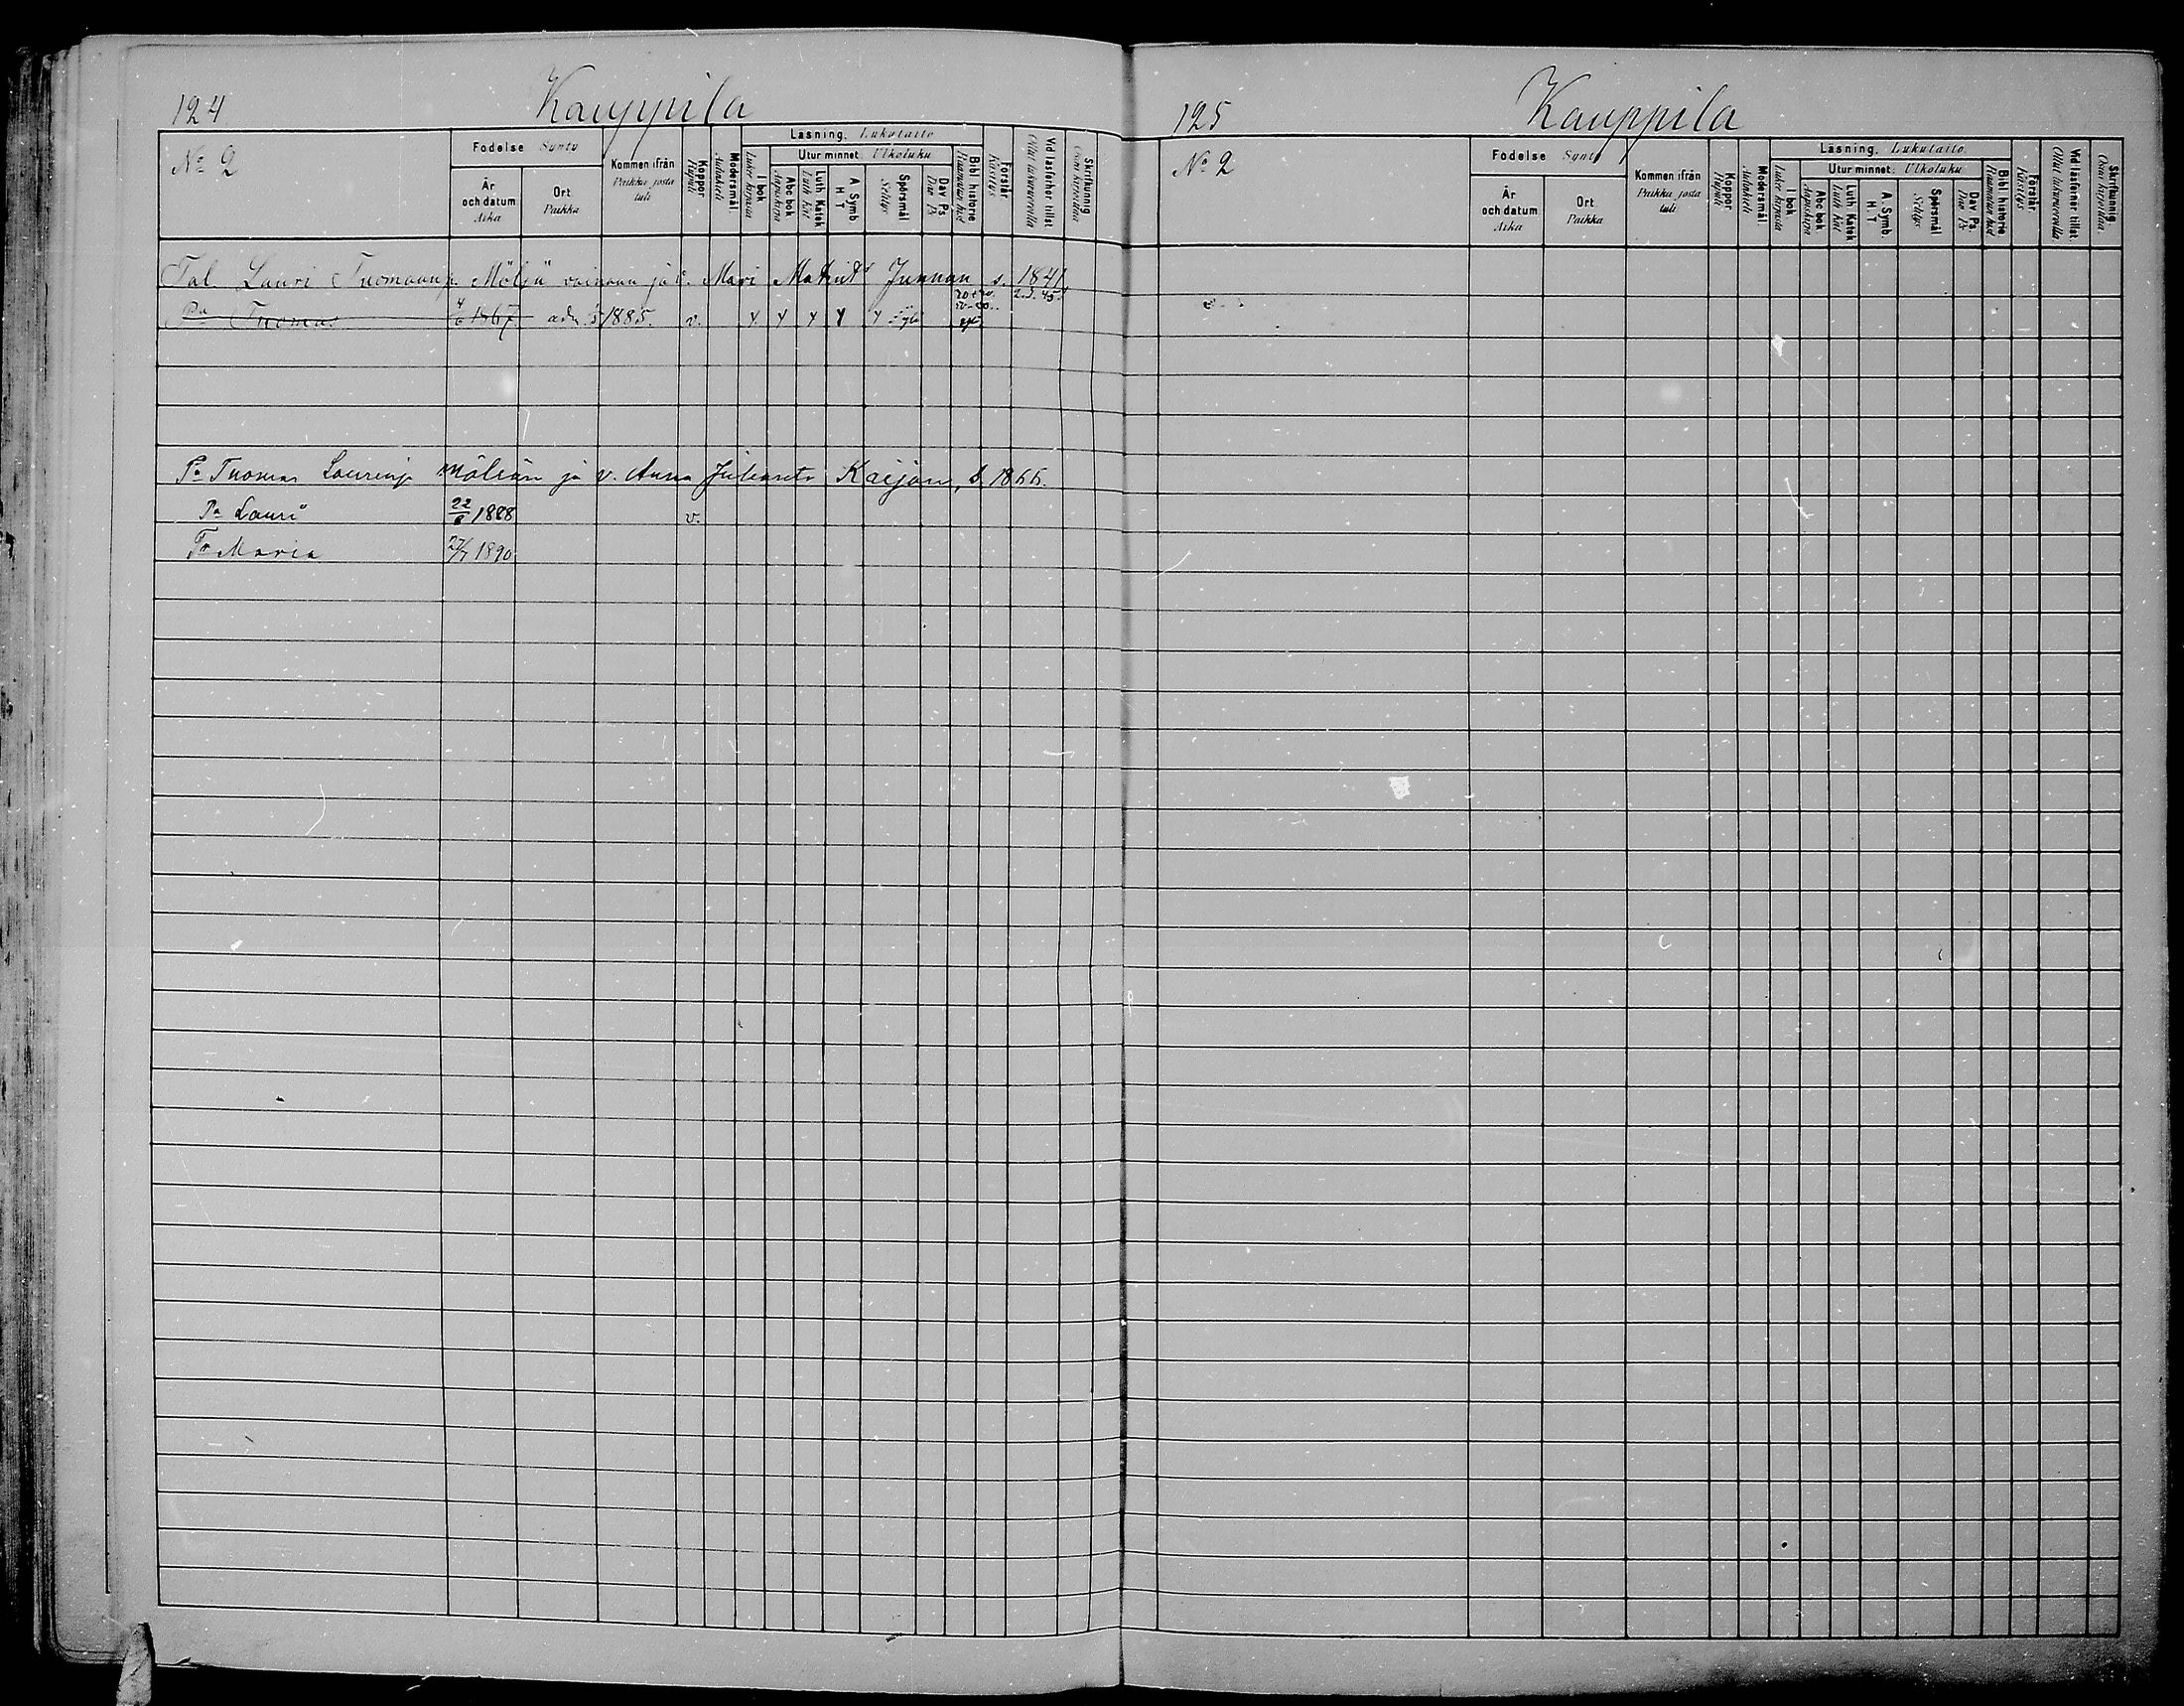 124 Kauppila
Nº 2
Födelse Synty
År och datum Aika
Ort Paikka
Kommen ifrån Paikka josta tuli
Koppor Rupuli
Modersmål. Äidinkieli
Läsning. Lukutaito
I bok Lukee kirjasta
Utur minnet. Ulkoluku
Abc bok Aapuskirja
Luth. Katek Luth Kat
A. Symb. H. T
Spörsmål Selitys
Dav. Ps. Dav. Ps
Bibl. historie Raamatun hist
Förstår. Käsitys
Vid läsförhör tillst. Ollut lukuvuorolla
Skrifkunnig Osaa kirjoittaa
Tal. Lauri Tuomaanp. Möljä vaimonu ja v. Mari Matint. Junnan s. 1841
Pa Tuomas 4/6 1867 adm 1885. v. y y y y y
Pa Tuomas Laurinp Möljän ja v. Anna Juhant. Kaijan, s. 1866.
Pa Lauri 22/6 1888 v.
Tr Maria 27/7 1890
125 Kauppila
Nº 2
Födelse Synty
År och datum Aika
Ort Paikka
Kommen ifrån Paikka josta tuli
Koppor Rupuli
Modersmål. Äidinkieli
Läsning. Lukutaito.
I bok Lukee kirjasta
Utur minnet. Ulkoluku
Abc bok Aapuskirja
Luth. Katek Luth Kat
A. Symb. H. T
Spörsmål Selitys
Dav. Ps. Dav. Ps
Bibl. historie. Raamatun hist
Förstår. Käsitys
Vid läsförhör tillst. Ollut lukuvuorolla.
Skrifkunnig Osaa kirjoittaa.